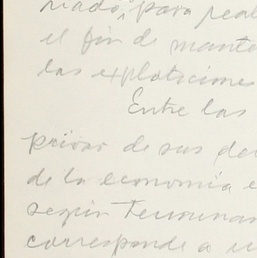 para real
el fin de mante
las explotaciones
Entre las
privar de sus de
de la economía e
según
corresponde a u